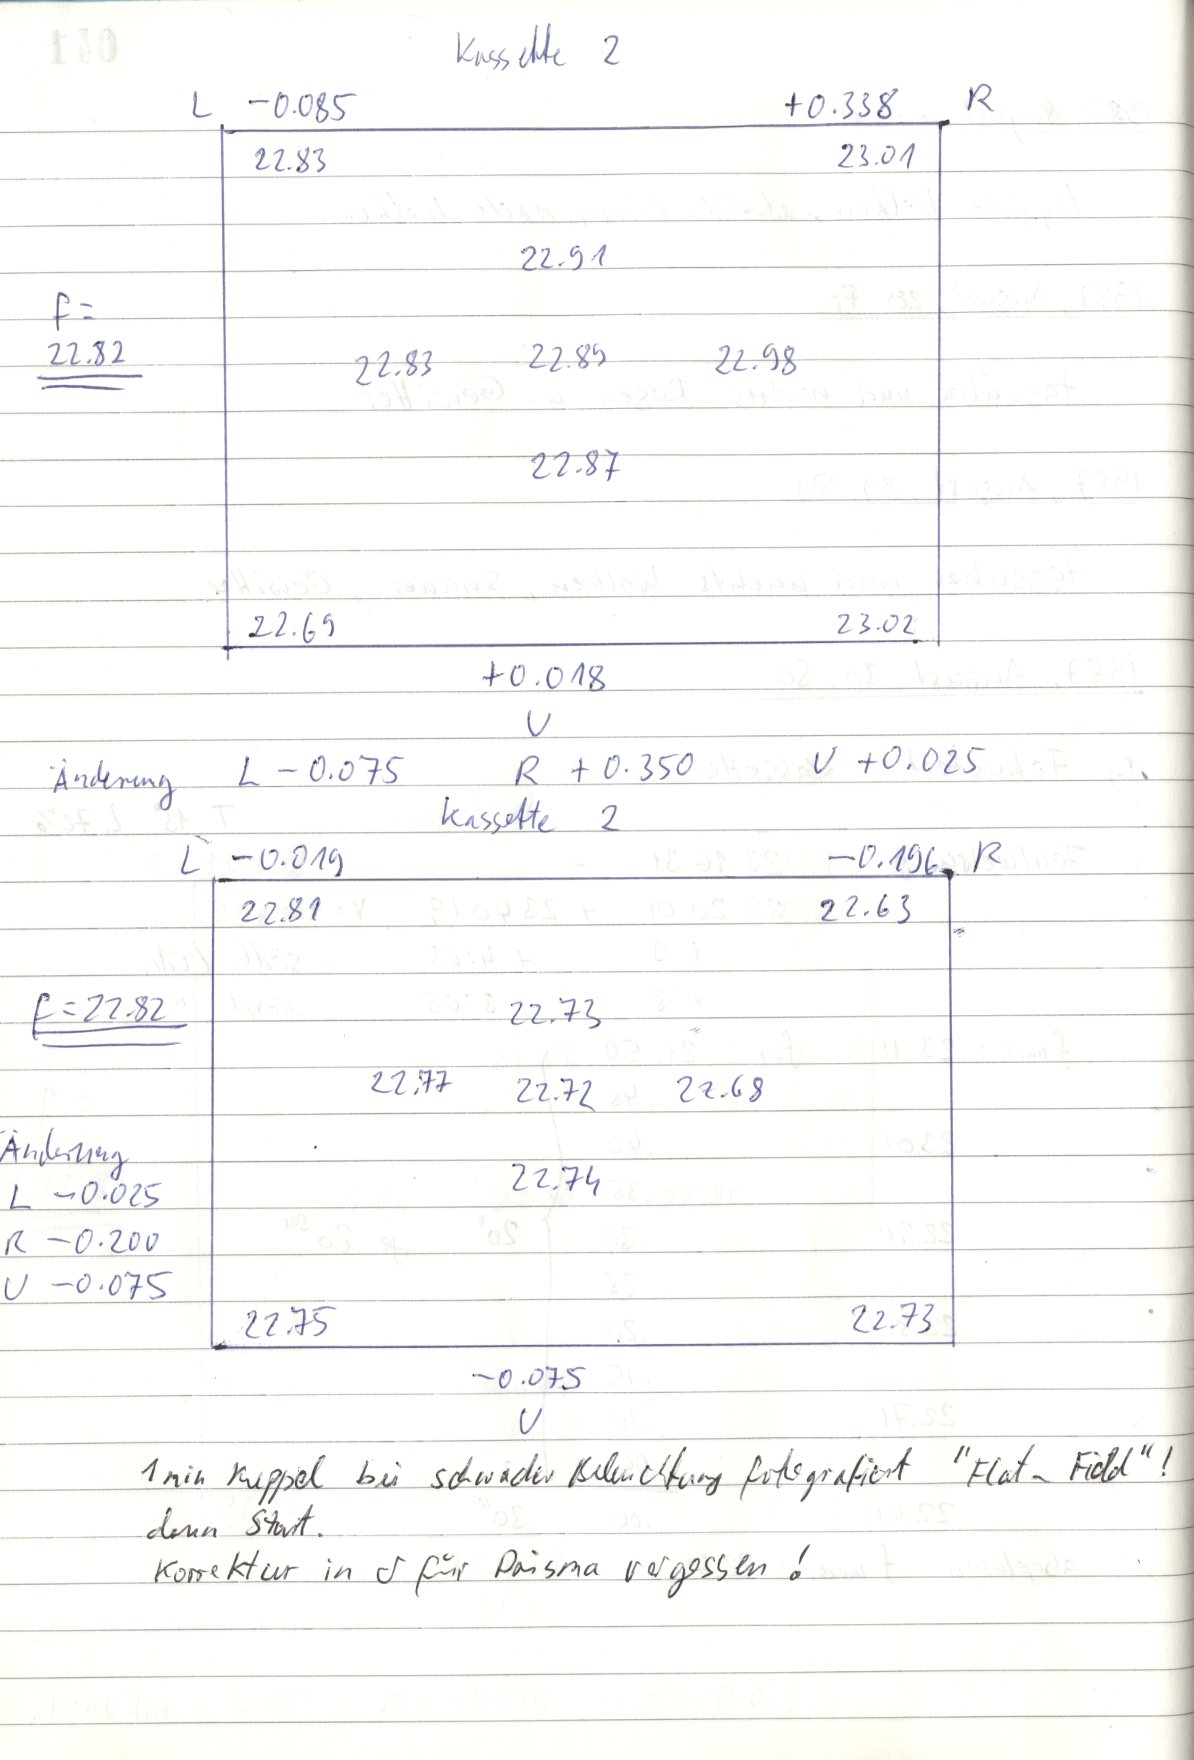 Kassette 2
L -0.085 +0.338 R
22.83 23.01
22.91
f=
22.82
22.83 22.89 22.98
22.87
22.69 23.02
+0.018
U
Änderung L -0.075 R +0.350 U +0.025
Kassette 2
L -0.019 -0.196 R
22.81 22.63
f=22.82
22.73
22.77 22.72 22.68
Änderung
22.74
L -0.025
R -0.200
U -0.075
22.75 22.73
-0.075
U
1 min Kuppel bei schwacher Beleuchtung fotografiert "Flat-Field"!
dann Start.
Korrektur in δ für Prisma vergessen!